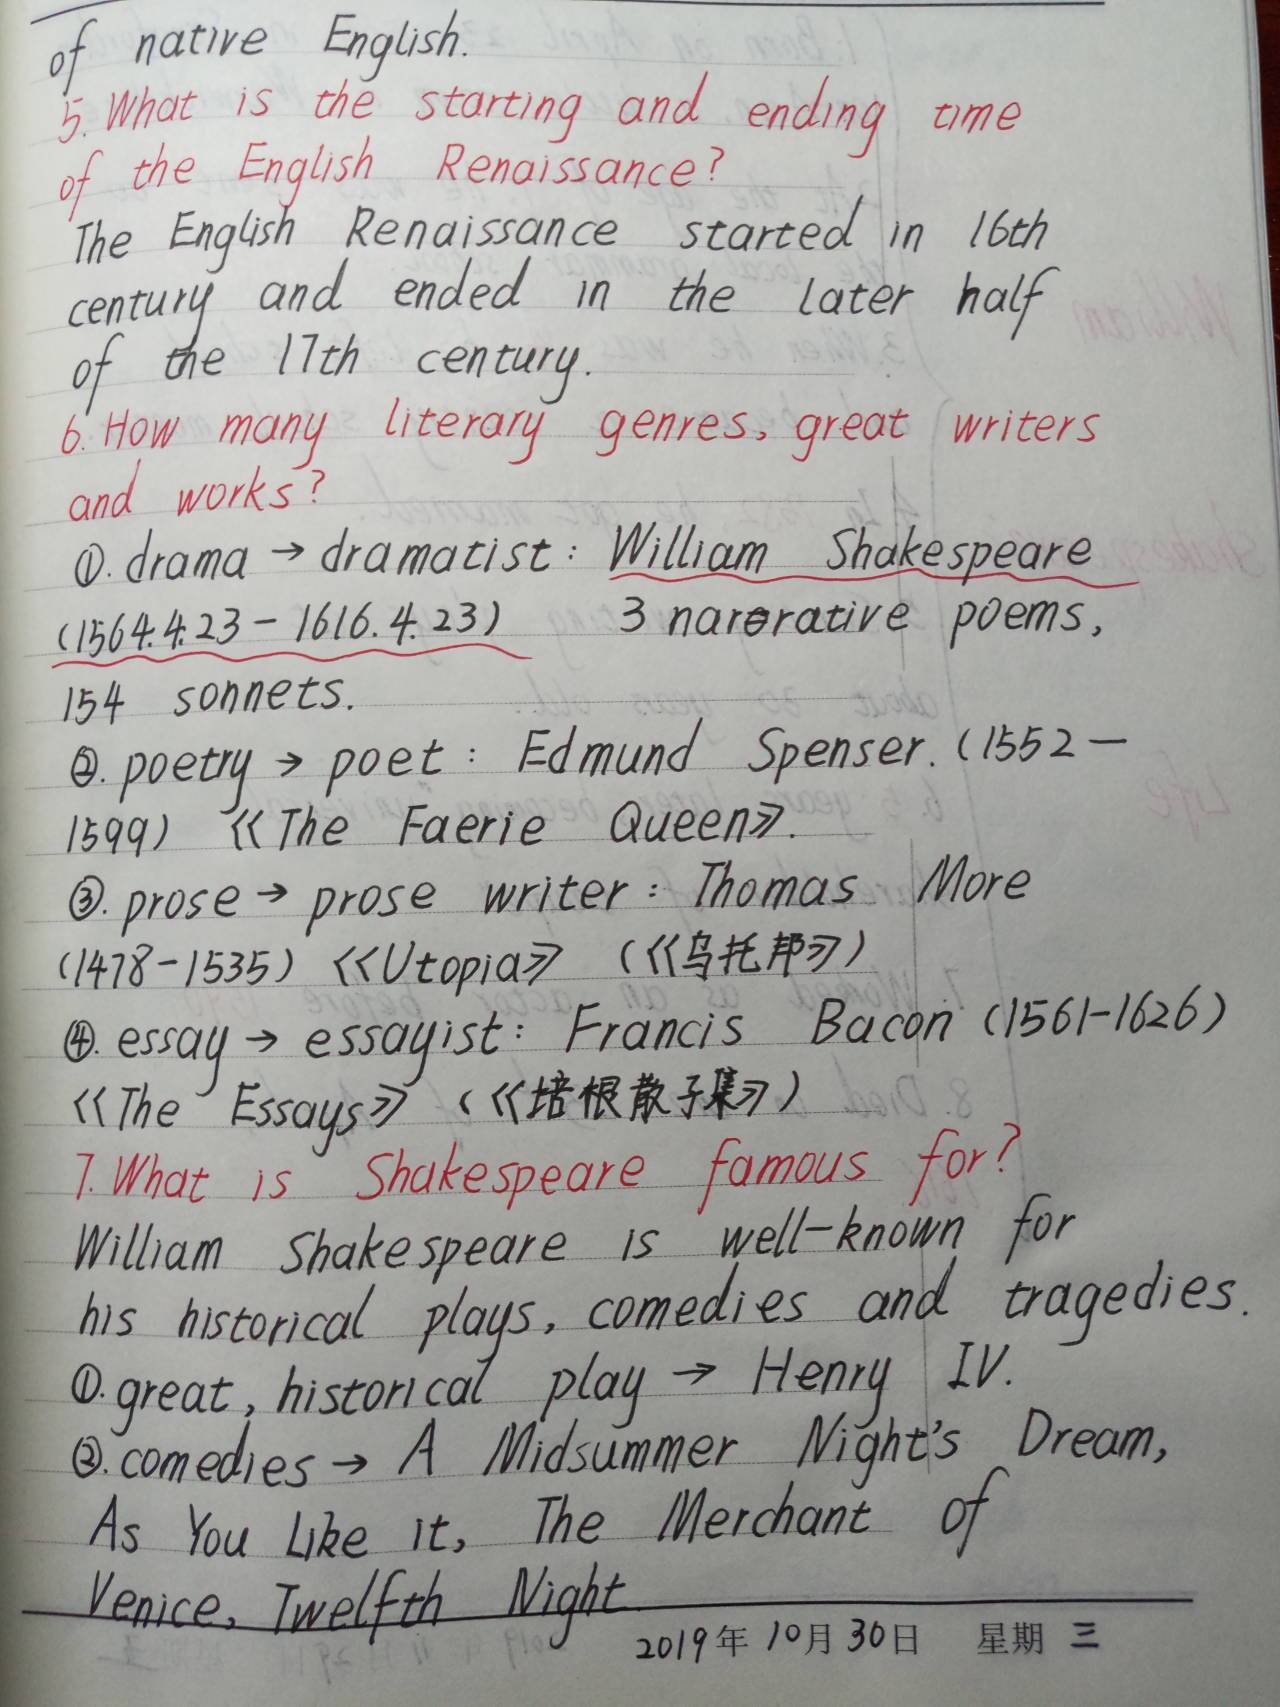 of native English.
5. What is the starting and ending time
of the English Renaissance?
The English Renaissance started in 16th
century and ended in the later half
of the 17th century.
6. How many literary genres, great writers
and works?
①. drama → dramatist: William Shakespeare
(1564.4.23 - 1616.4.23) 3 narrative poems,
154 sonnets.
②. poetry → poet: Edmund Spenser. (1552 —
1599) 《The Faerie Queen》.
③. prose → prose writer: Thomas More
(1478-1535) 《Utopia》 (《乌托邦》)
④. essay → essayist: Francis Bacon (1561-1626)
《The Essays》 (《培根散子集》)
7. What is Shakespeare famous for?
William Shakespeare is well-known for
his historical plays, comedies and tragedies.
①. great, historical play → Henry IV.
②. comedies → A Midsummer Night's Dream,
As You Like it, The Merchant of
Venice, Twelfth Night
2019年 10月 30日 星期 三